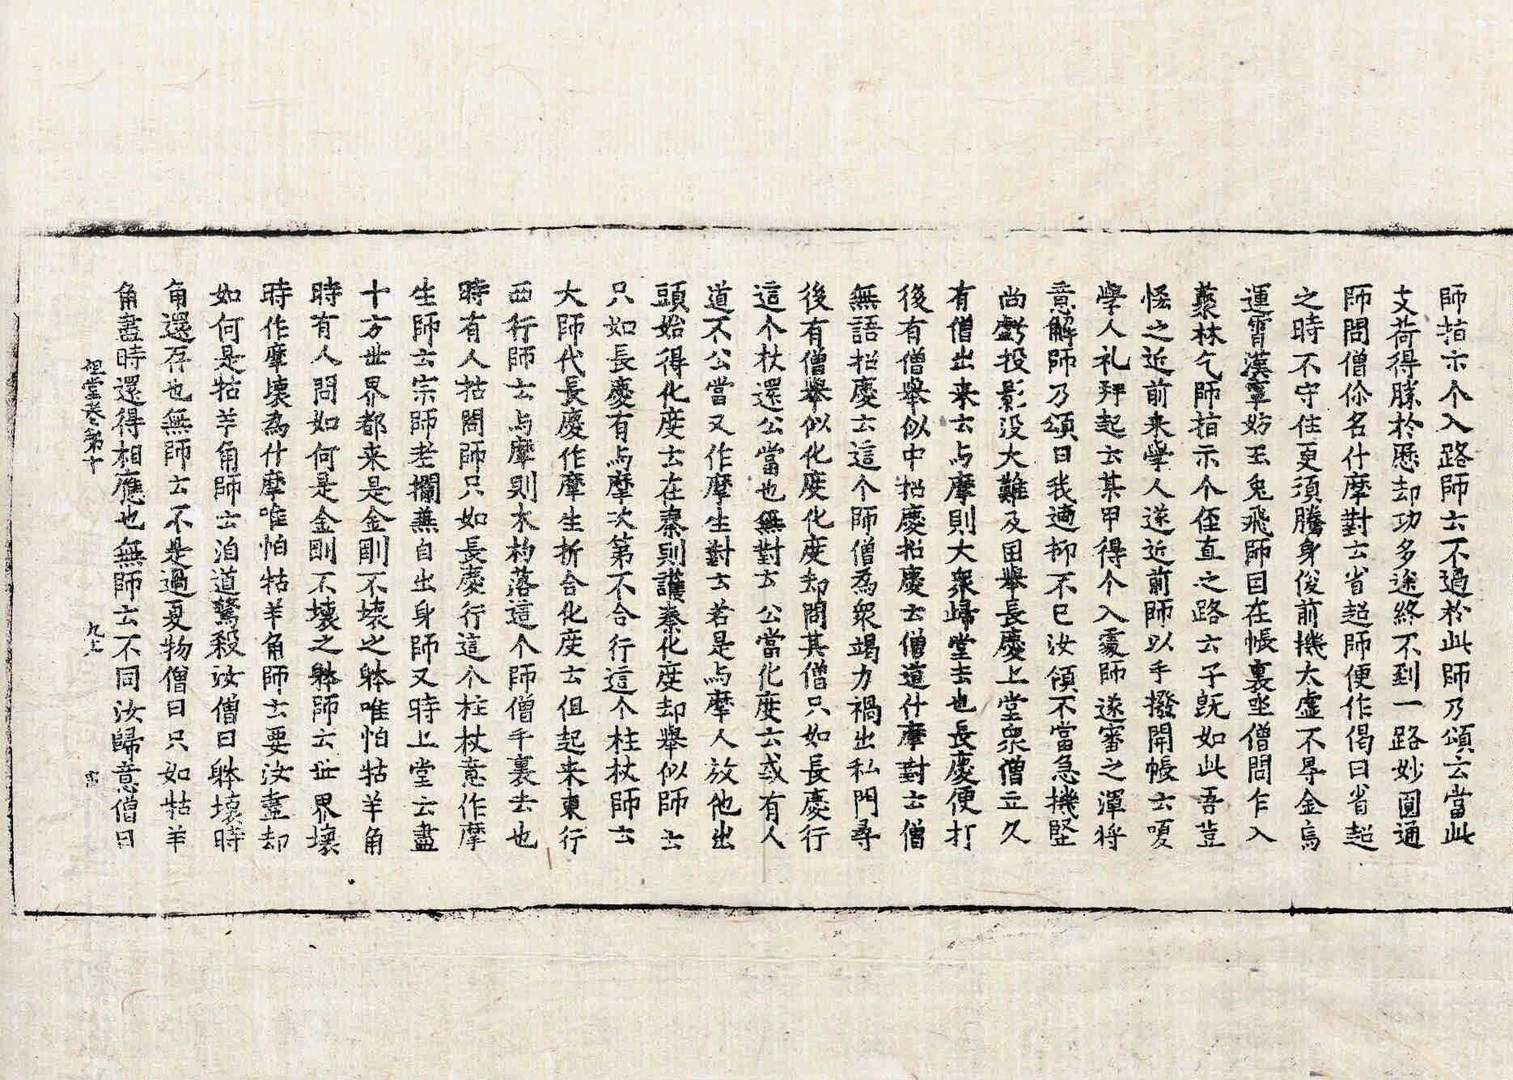 師指示个入路師云不過於此師乃頌云當此
支荷得䐈於歷劫功多迷終不到一路妙圓通
師問僧你名什摩對云省超師便作偈曰省超
之時不守住更須騰身俊前機太虛不㝵金烏
運霄漢寧妨玉兔飛師因在帳裏坐僧問乍入
藂林乞師指示个徑直之路云子既如此吾豈
恡之近前来學人遂近前師以手撥開帳云嗄
學人礼拜起云某甲得个入處師遂審之渾将
意解師乃頌曰我適抑不已汝領不當急機竪
尚虧投影没大難及因舉長慶上堂衆僧立久
有僧出来云与摩則大衆歸堂去也長慶便打
後有僧舉似中招慶招慶云僧道什摩對云僧
無語招慶云這个師僧爲衆竭力禍出私門尋
後有僧舉似化度化度却問其僧只如長慶行
這个杖還公當也無對云公當化度云或有人
道不公當又作摩生對云若是与摩人放他出
頭始得化度云在秦則護秦化度却舉似師云
只如長慶有与摩次第不合行這个柱杖師云
大師代長慶作摩生折合化度云但起来東行
西行師云与摩則木杓落這个師僧手裏去也
時有人拈問師只如長慶行這个柱杖意作摩
生師云宗師老攔蕪自出身師又時上堂云盡
十方世界都来是金剛不壞之躰唯怕牯羊角
時有人問如何是金剛不壞之躰師云世界壞
時作摩壞為什摩唯怕牯羊角師云要汝盡却
如何是牯羊角師云洎道驚殺汝僧曰躰壞時
角還存也無師云不是過夏物僧曰只如牯羊
角盡時還得相應也無師云不同汝歸意僧曰
祖堂卷第十　九上